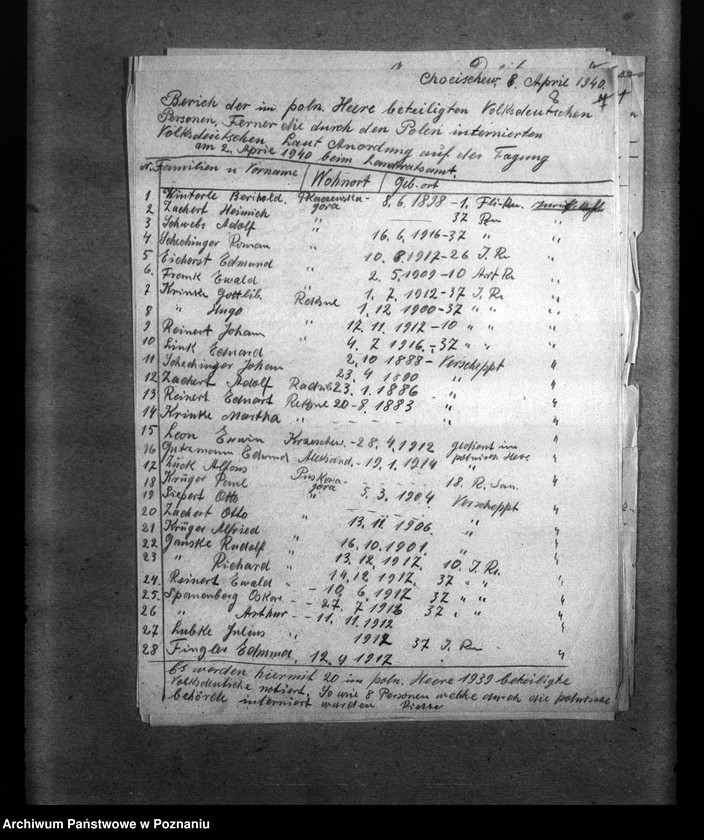 Chocischew, 8. April 1940.
Berich der im poln. Heere beteiligten Volksdeutschen
Personen, Ferner die durch den Polen internierten
Volksdeutschen, Laut Anordnung auf der Tagung
am 2. April 1940 beim Landratsamt.
N. Familien u Vorname Wohnort Geb. ort
1 Winterle Berthold. gora 8. 6. 1898 - 1.
2 Zachert Heinrich " 37 Rn "
3 Schwebs Adolf " 16. 6. 1916-37 " "
4. Schechinger Roman " 10. 8. 1912-26 J. R. "
5 Eichorst Edmund " 2. 5. 1909-10 Art R. "
6. Frank Ewald " 1. 7. 1912-37 J. R. "
7 Krinke Gottlib. 1. 12. 1900-37 " " "
8 " Hugo " 17. 11. 1912-10 " " "
9 Reinert Johann " 4. 7. 1916-37 " " "
10 Link Edmard " 2. 10 1888 - Verscheppt "
11 Schechinger Johann 23. 4 1890 " "
12 Zachert Adolf 23. 1. 1886 " "
13 Reinert Edmart 20-8. 1883 " "
14 Krinke Martha " "
15 Leon Erwin 28. 4. 1912 gedient im
16 Gutzmann Edmund Aleksand. - 19. 1. 1914 polnischen Heere "
17 Zück Alfons
18 Krüger Paul gora 18. R. "
19 Siepert Otto " 5. 3. 1904 Verscheppt "
20 Zachert Otto "
21 Krüger Alfried " 13. 11 1906. " "
22 Janske Rudolf " 16. 10. 1901. " "
23 " Richard " 13. 12. 1917. 10. J. R. "
24. Reinert Ewald - 14. 12. 1917. 37 " " "
25. Spanenberg Oskar - 10. 6. 1917 37 " " "
26 " Arthur - 27. 7. 1916 37 " " "
27 Lubke Julius " 11. 11. 1912
28 Fingler Edmund. 12. 4 1917 37 J. Rn "
Es werden hiermit 20 im poln. Heere 1939 beteiligte
Volksdeutsche notiert. So wie 8 Personen welche durch die polnische
behörde interniert wurden
Archiwum Państwowe w Poznaniu